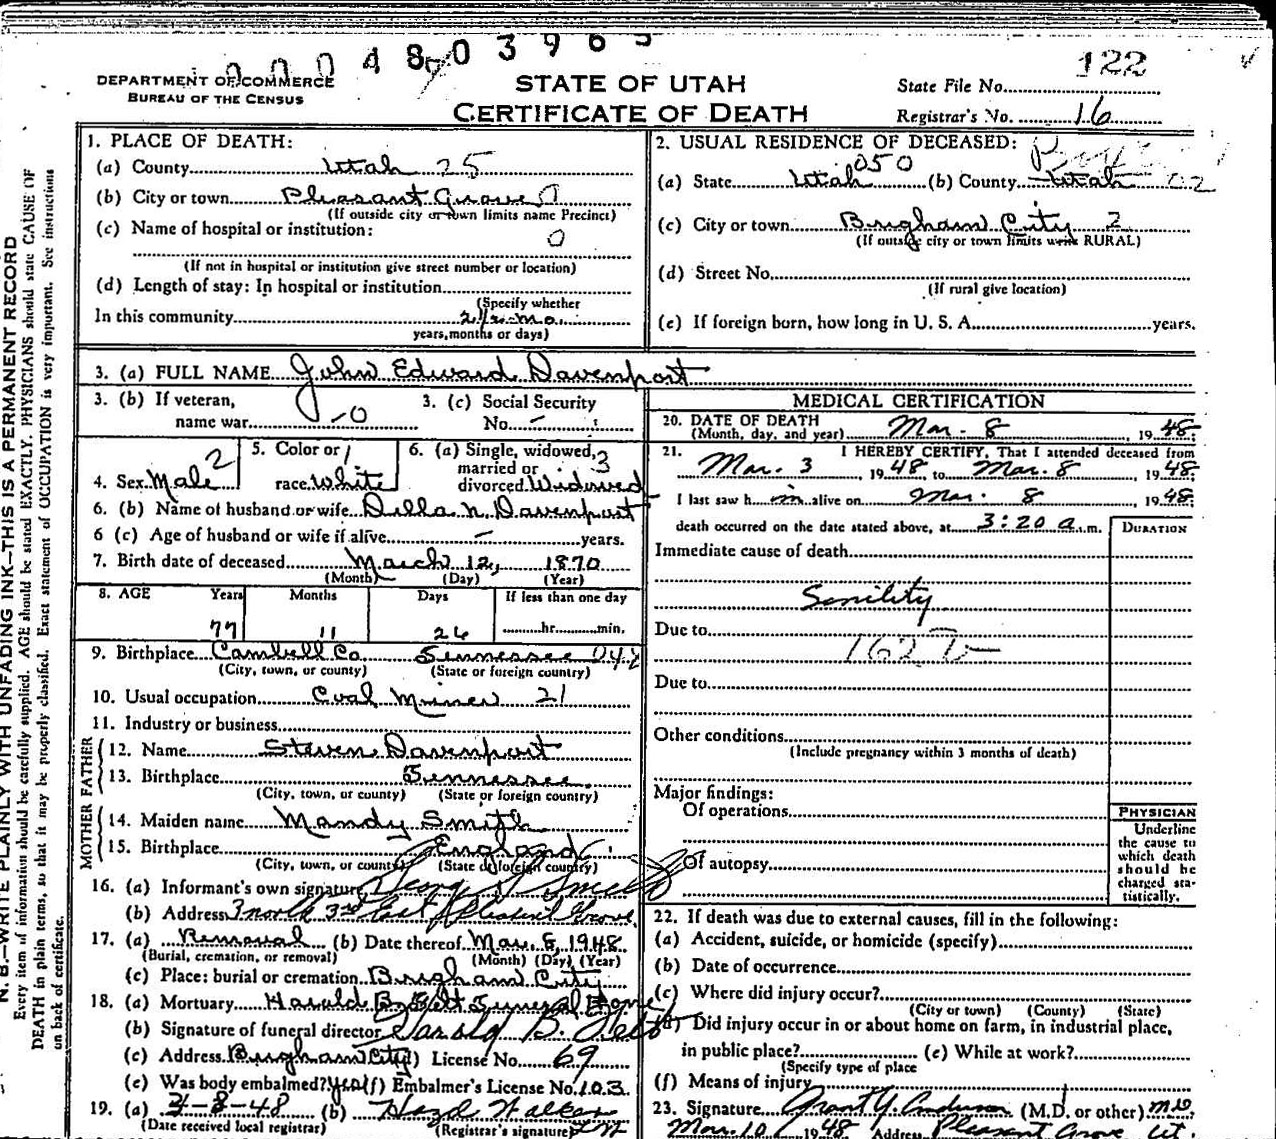 0004803965
122
DEPARTMENT OF COMMERCE
BUREAU OF THE CENSUS
STATE OF UTAH
CERTIFICATE OF DEATH
State File No.
Registrar's No. 16
1. PLACE OF DEATH:
(a) County Utah 25
(b) City or town Pleasant Grove 0
(If outside city or town limits name Precinct)
(c) Name of hospital or institution:
0
(If not in hospital or institution give street number or location)
(d) Length of stay: In hospital or institution
(Specify whether
In this community 2 1/2 mo.
years, months or days)
2. USUAL RESIDENCE OF DECEASED:
050
(a) State Utah (b) County Utah 02
(c) City or town Brigham City 2
(If outside city or town limits write RURAL)
(d) Street No.
(If rural give location)
(e) If foreign born, how long in U. S. A. years.
3. (a) FULL NAME John Edward Davenport
3. (b) If veteran,
name war -0
3. (c) Social Security
No. -
4. Sex Male 2
5. Color or 1
race White
6. (a) Single, widowed, 3
married or
divorced Widowed
6. (b) Name of husband or wife Della N. Davenport
6 (c) Age of husband or wife if alive - years.
7. Birth date of deceased March 12, 1870
(Month) (Day) (Year)
8. AGE Years Months Days If less than one day
77 11 26 hr. min.
9. Birthplace Cambell Co Tennessee
(City, town, or county) (State or foreign country)
10. Usual occupation Coal Miner 21
11. Industry or business
FATHER
12. Name Steven Davenport
13. Birthplace Tennessee
(City, town, or county) (State or foreign country)
MOTHER
14. Maiden name Mandy Smith
15. Birthplace England
(City, town, or county) (State or foreign country)
16. (a) Informant's own signature
(b) Address 3 north 3rd East Pleasant Grove
17. (a) Removal (b) Date thereof Mar. 8, 1948
(Burial, cremation, or removal) (Month) (Day) (Year)
(c) Place: burial or cremation Brigham City
18. (a) Mortuary Harold B. Felt Funeral Home
(b) Signature of funeral director Harold B. Felt
(c) Address Brigham City License No. 69
(e) Was body embalmed? Yes (f) Embalmer's License No. 103
19. (a) 3-8-48 (b) Hazel Walker
(Date received local registrar) (Registrar's signature)
MEDICAL CERTIFICATION
20. DATE OF DEATH
(Month, day, and year) Mar. 8, 1948
21. I HEREBY CERTIFY, That I attended deceased from
Mar. 3 1948 to Mar. 8 1948
I last saw him alive on Mar. 8 1948
death occurred on the date stated above, at 3:20 a.m.
DURATION
Immediate cause of death
Senility
Due to
Due to
Other conditions
(Include pregnancy within 3 months of death)
Major findings:
Of operations
Of autopsy
PHYSICIAN
Underline
the cause to
which death
should be
charged sta-
tistically.
22. If death was due to external causes, fill in the following:
(a) Accident, suicide, or homicide (specify)
(b) Date of occurrence
(c) Where did injury occur?
(City or town) (County) (State)
(d) Did injury occur in or about home on farm, in industrial place,
in public place? (e) While at work?
(Specify type of place
(f) Means of injury
23. Signature Grant Y. Anderson (M.D. or other) M.D.
Mar. 10 1948 Address Pleasant Grove Ut.
N. B.—WRITE PLAINLY WITH UNFADING INK—THIS IS A PERMANENT RECORD
Every item of information should be carefully supplied. AGE should be stated EXACTLY. PHYSICIANS should state CAUSE OF
DEATH in plain terms, so that it may be properly classified. Exact statement of OCCUPATION is very important. See instructions
on back of certificate.